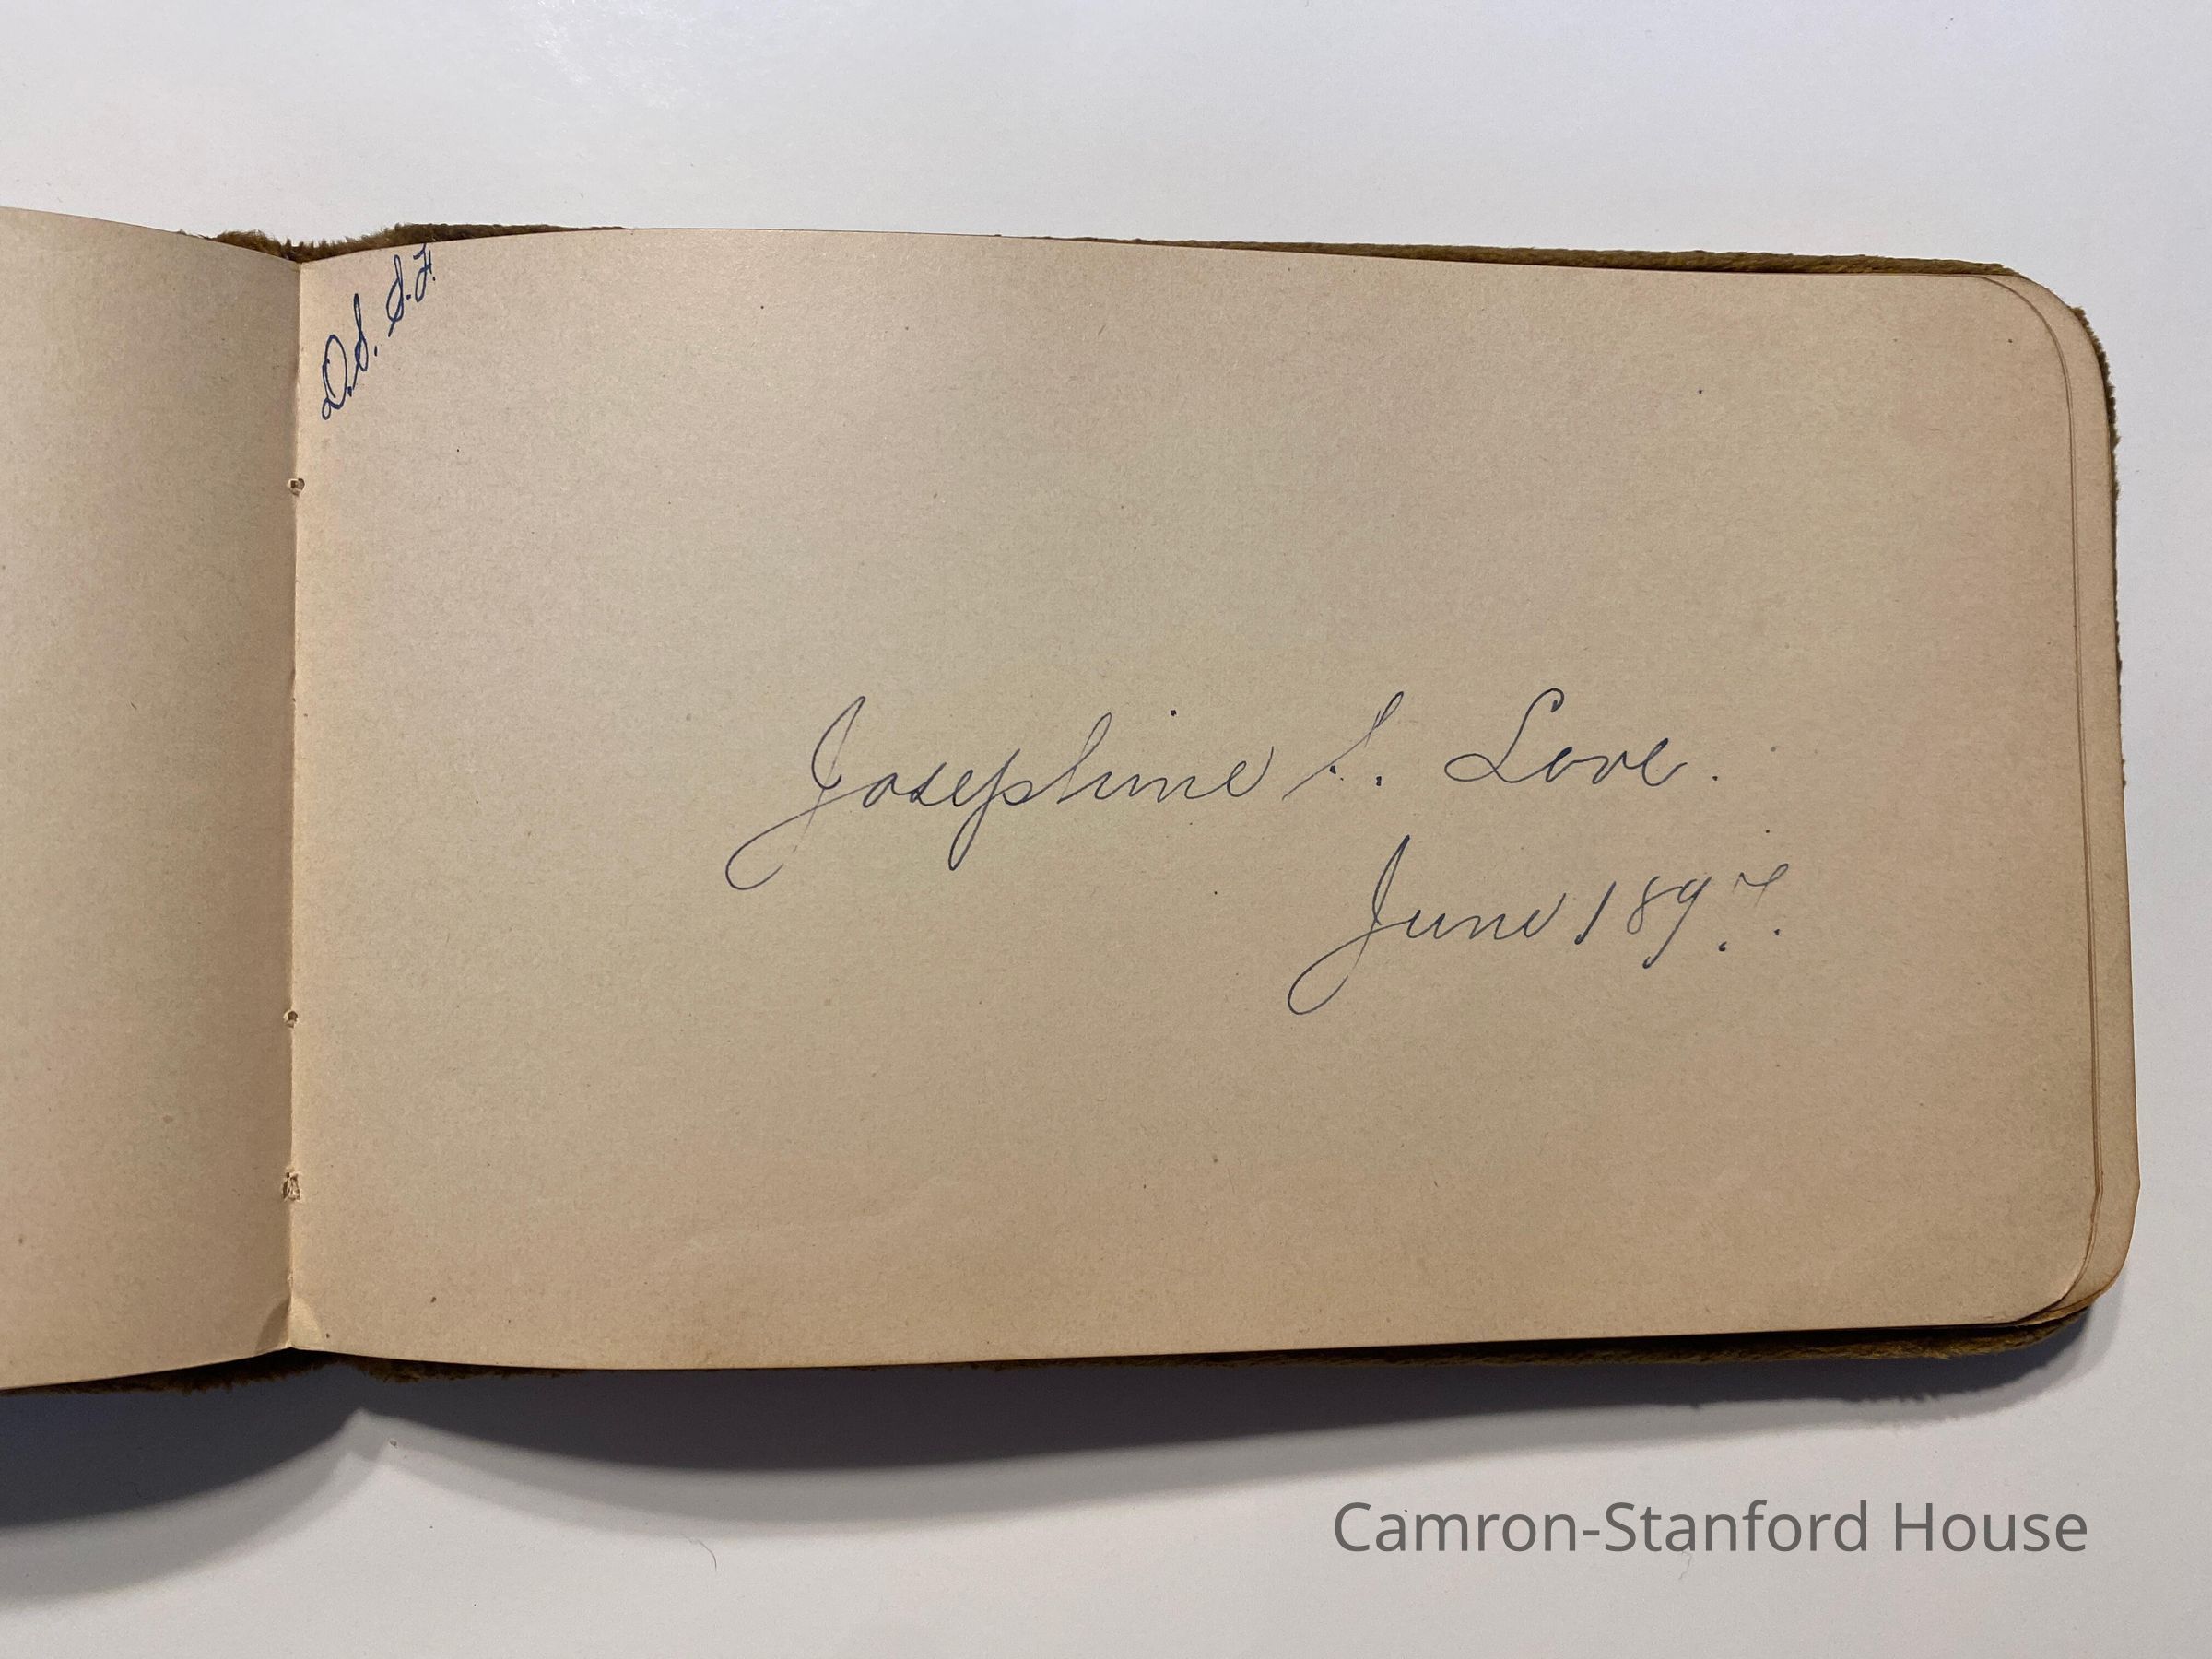 D.S. S.F.
Josephine S. Love.
June 1897.
Camron-Stanford House